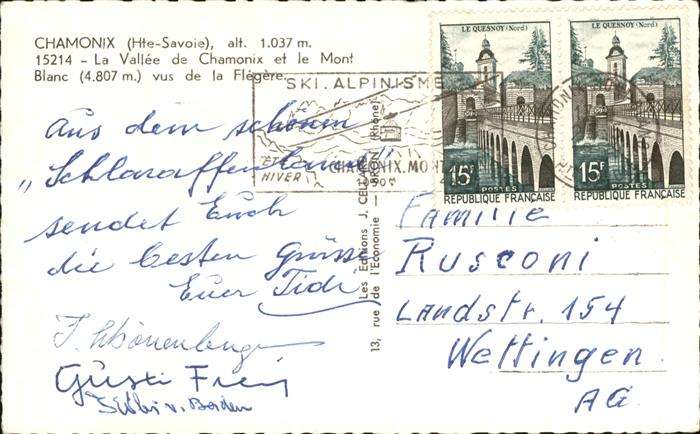 CHAMONIX (Hte-Savoie), alt. 1.037 m.
15214 - La Vallée de Chamonix et le Mont
Blanc (4.807 m.) vus de la Flégère.
SKI. ALPINISME
ETE
HIVER
CHAMONIX. MONT
LE QUESNOY (Nord)
15F
POSTES
REPUBLIQUE FRANÇAISE
LE QUESNOY (Nord)
15F
POSTES
REPUBLIQUE FRANÇAISE
Aus dem schönen
„Schlaraffenlande"
sendet Euch
die besten Grüsse
Euer Tidi
Gusti Frei
v. Borden
Les Editions J. CELLARD - BRON (Rhône)
13, rue de l'Economie
Familie
Rusconi
Landstr. 154
Wettingen.
AG.